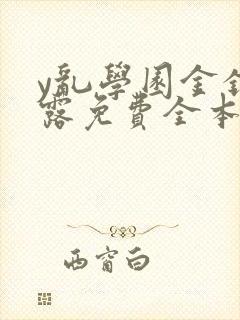 y亂學園全
露免費全本
西窗白